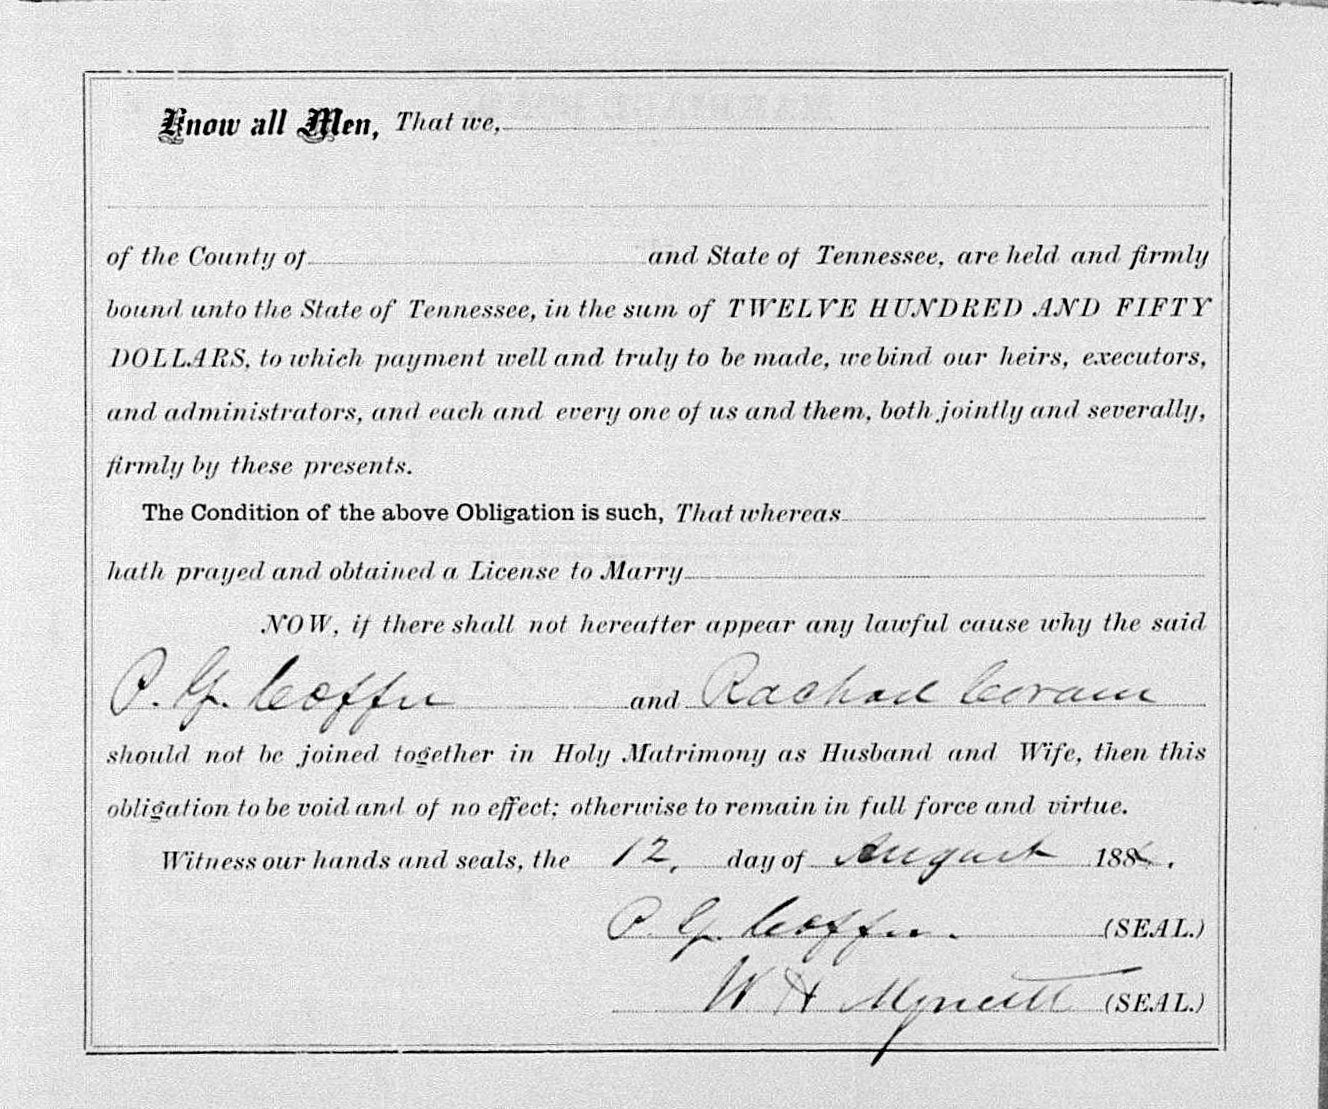 Know all Men, That we,
of the County of and State of Tennessee, are held and firmly
bound unto the State of Tennessee, in the sum of TWELVE HUNDRED AND FIFTY
DOLLARS, to which payment well and truly to be made, we bind our heirs, executors,
and administrators, and each and every one of us and them, both jointly and severally,
firmly by these presents.
The Condition of the above Obligation is such, That whereas
hath prayed and obtained a License to Marry
NOW, if there shall not hereafter appear any lawful cause why the said
P. G. Coffin and Rachael Coram
should not be joined together in Holy Matrimony as Husband and Wife, then this
obligation to be void and of no effect; otherwise to remain in full force and virtue.
Witness our hands and seals, the 12, day of August 188 .
P. G. Coffin. (SEAL.)
W H Mynatt (SEAL.)